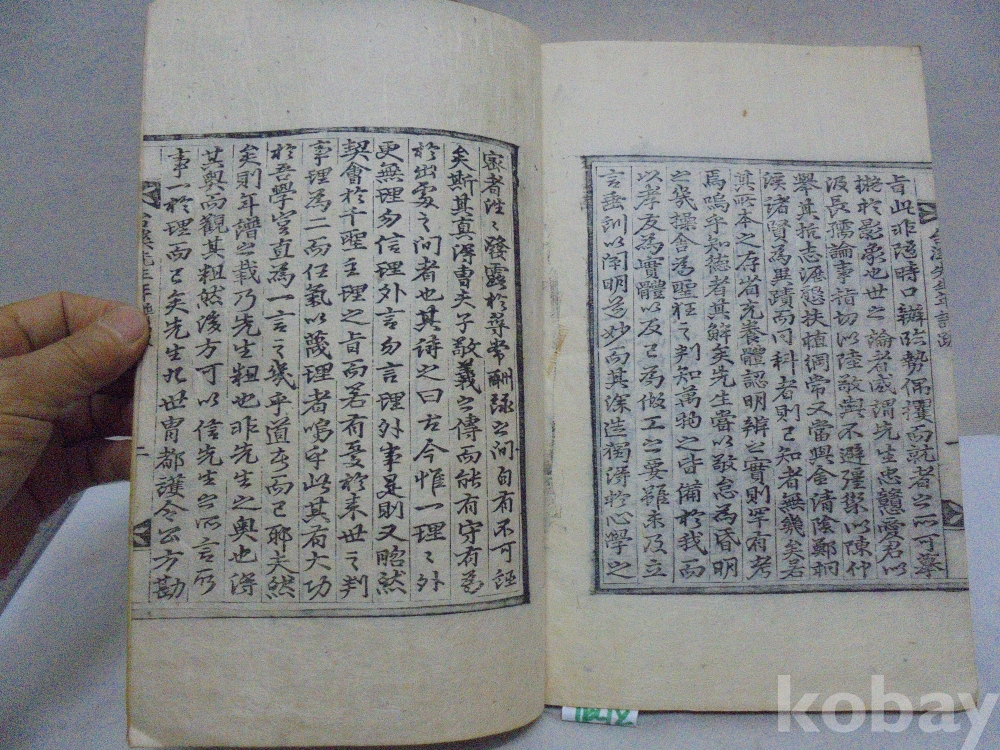 旨此非隐時口辦臨勢偶攫而就者之所可摹
擬於影象也世之論者咸謂先生忠戇愛君以
汲長孺論事指切以陸敬輿不避彊禦以陳仲
舉其抗志濯慇扶植綱常又當與金清陰鄭桐
溪諸賢爲匹蹟而同科者則已知者無幾矣若
其所本之存省充養體認明辨之實則罕有考
焉嗚乎知德者其解矣先生嘗以敬怠爲昏明
之幾操舍爲聖狂之判知萬物之皆備於我而
以孝友爲實體以反己爲做工之要雖未及立
言垂訓以闡明道妙而其深造獨得於心學之
密者往〻發露於尋常酬酢之間自有不可誣
矣斯其眞得曹夫子敬義之傳而能有守有爲
於出處之間者也其詩之曰古今惟一理〻外
更無理勿信理外言勿言理外事是則又昭然
契會於千聖主理之旨而若有憂於來世之判
事理爲二而任氣以蔑理者嗚乎此其有大功
於吾學豈直爲一言之幾乎道而已耶夫然
矣則年譜之載乃先生之粗也非先生之奥也得
其奥而觀其粗然後方可以信先生之所言所
事一於理而已矣先生九世胄都護令公方勘
溪先生年譜
一
kobay